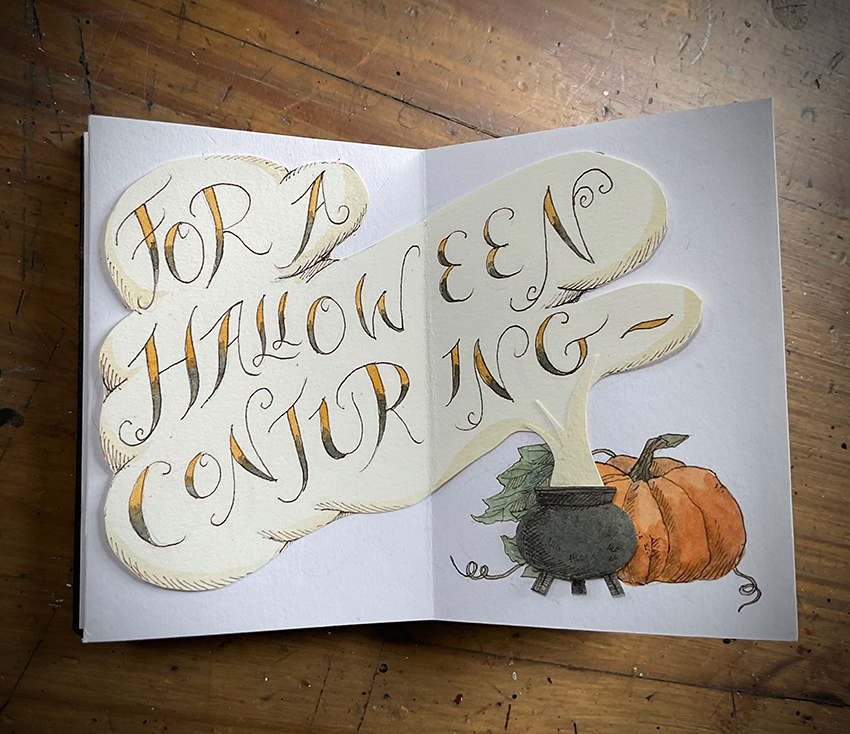 FOR A
HALLOWEEN
CONJURING-